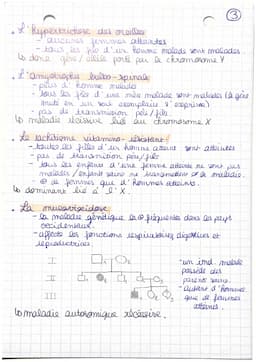 ③
• L'hypertrichose des oreilles
- aucunes femmes atteintes
- tous les fils d'un homme malade sont malades.
↳ donc gène / allèle porté par le chromosome Y
• L'amyotrophie bulbo-spinale
- plus d'homme malade
- tous les fils d'une mère malade sont malades (le gène
en un seul exemplaire s'exprime)
- pas de transmission père/fils
↳ maladie liée au chromosome X
• Le rachitisme vitamino-résistant :
- toutes les filles d'un homme atteint sont atteintes
- pas de transmission père/fils
- tous les enfants d'une femme atteinte ne sont pas
malades / enfant saine ne transmettent pas la maladie.
- de femmes que d'hommes atteints.
↳ dominant lié à l'X.
• La mucoviscidose
- la maladie génétique la + fréquente dans les pays
occidentaux.
- affecte les fonctions respiratoires digestives et
reproductrices.
I
II
III
- un ind malade
possède des
parents sains.
- autant d'hommes
que de femmes
atteint.
↳ maladie autosomique récessive.